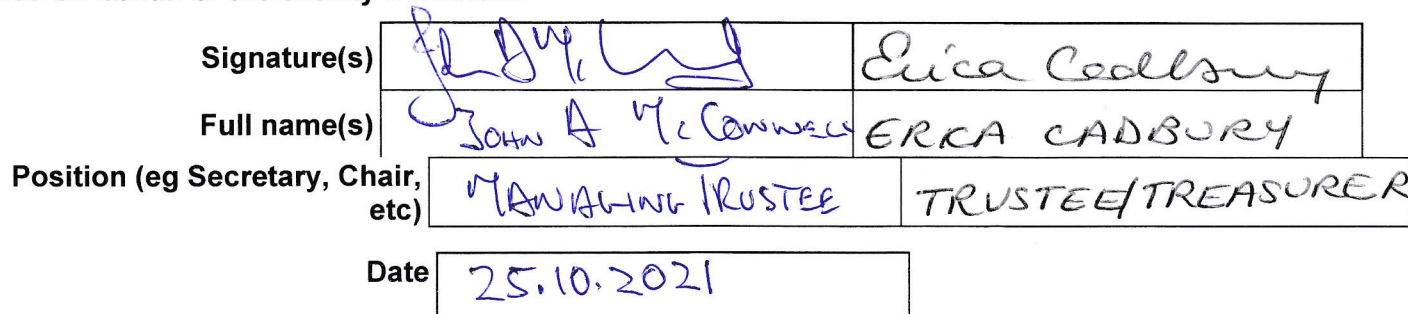 Signature(s) Erica Cadbury
Full name(s) JOHN A McCONNELL ERICA CADBURY
Position (eg Secretary, Chair, MANAGING TRUSTEE TRUSTEE/TREASURER
etc)
Date 25.10.2021